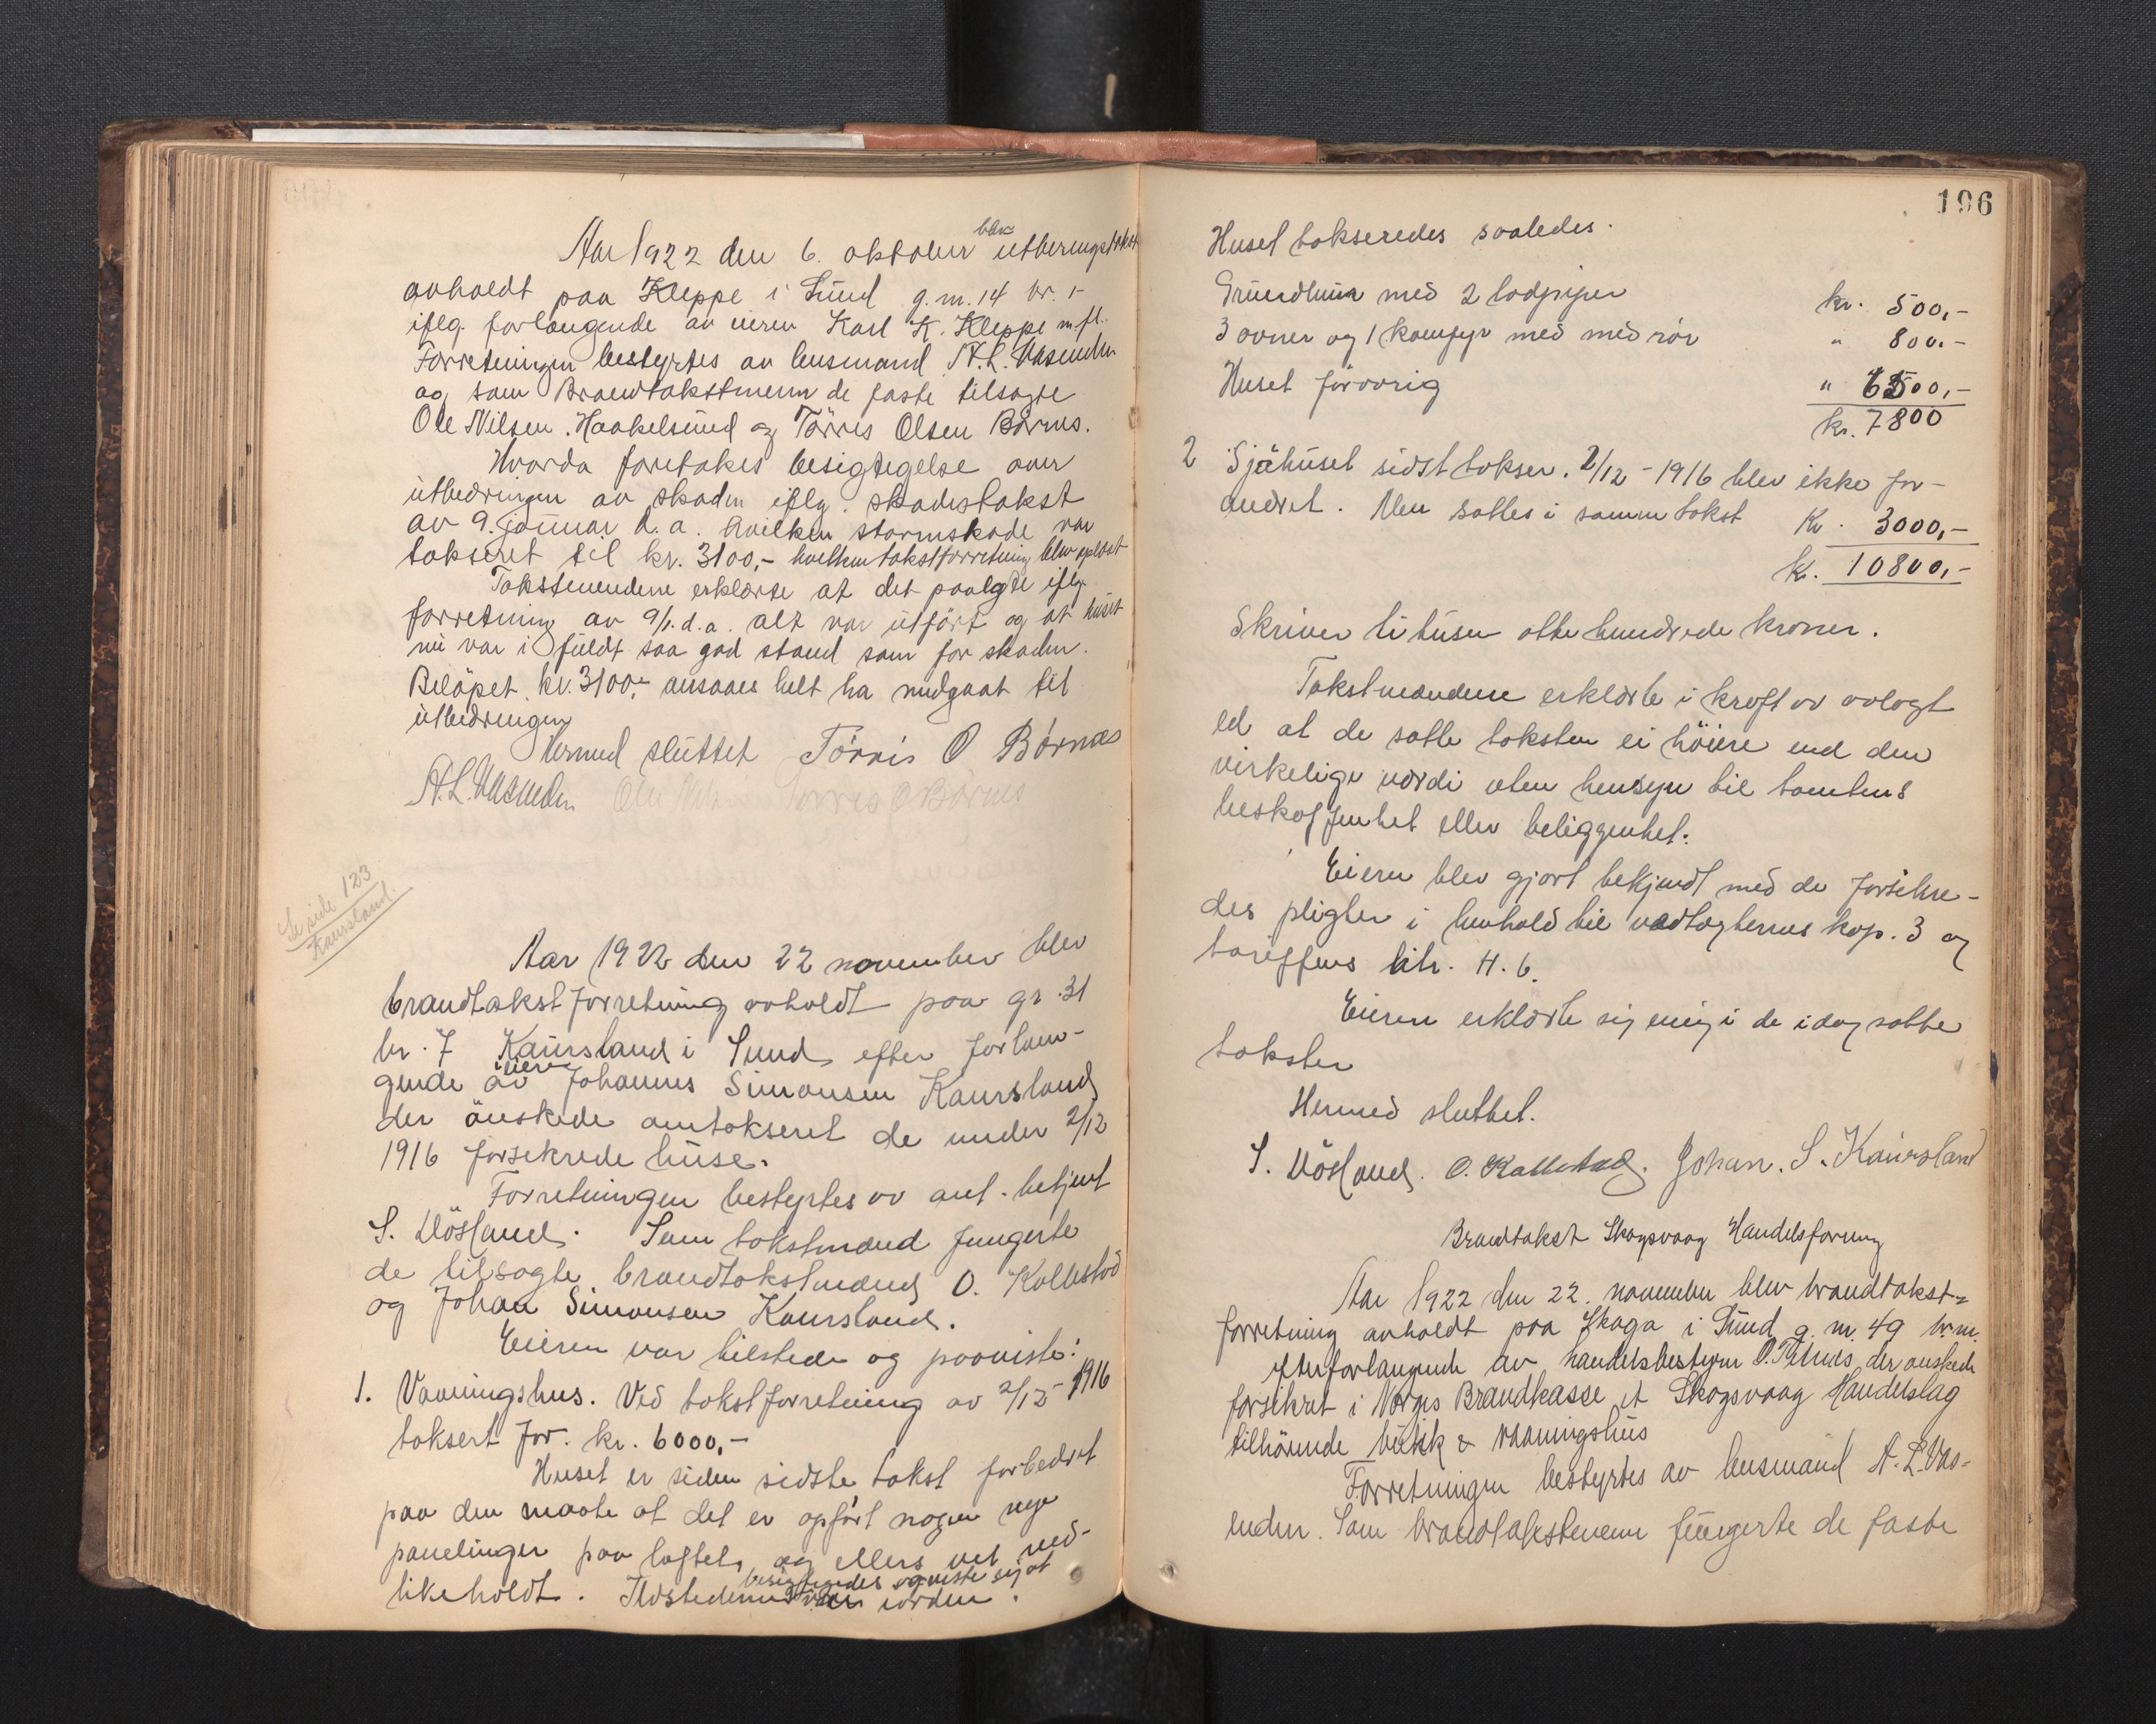 Aar 1922 den 6. oktober blev utbedringstakst
avholdt paa Kleppe i Sund g.m. 14 br. 1
iflg. forlangende av eieren Karl K. Kleppe m.fl.
Forretningen bestyrtes av lensmand A.L. Vasenden
og som Brandtakstmenn de faste tilsagte
Ole Nilsen Haakelsund og Törris Olsen Börnes.
Hvorda foretokes besigtegelse over
utbedringen av skaden iflg. skadestakst
av 9. januar d.a. hvilken stormskade var
takseret til kr. 3100,- hvilken takstforretning blev oplæst
Takstmendene erklærte at det paalagte iflg.
forretning av 9/1. d.a. alt var utfört og at huset
nu var i fuldt saa god stand som for skaden.
Belöpet kr. 3100,- ansaaes helt ha medgaat til
utbedringen
Hermed sluttet Törris O Börnes
A.L. Vasenden Ole Törris O Börnes
Se side 123
Kaursland.
Aar 1922 den 22 november blev
brandtakstforretning avholdt paa gr. 31
br. 7 Kaursland i Sund efter forlan-
gende av eieren Johannes Simonsen Kaursland
der önskede omtakseret de under 2/12
1916 forsekrede huse.
Forretningen bestyrtes av ant. betjent
S. Dösland. Som takstmænd fungerte
de tilsagte brandtakstmænd O. Kallestad
og Johan Simonsen Kaursland.
Eieren var tilstede og paaviste:
1. Vaaningshus. Ved takstforretning av 2/12 1916
taksert for kr. 6000,-
Huset er siden sidste takst forbedret
paa den maate at det er opfört nogen nye
panelinger paa loftet, og ellers vel ved-
likeholdt. Ildstederne besigtigedes og viste sig at var iorden.
196
Huset takseredes saaledes.
Grundmur med 2 lodpiper kr. 500,-
3 ovner og 1 komfyr med med rör " 800.-
Huset forövrig " 6500,-
kr. 7800
2 Sjöhuset sidst takser. 2/12 - 1916 blev ikke for-
andret. Men sattes i samme takst Kr. 3000,-
Kr. 10800,-
Skriver titusen otte hundrede kroner.
Takstmændene erklærte i kraft av avlagt
ed at de satte taksten ei höiere end den
virkelige værdi uten hensyn til tomtens
beskaffenhet eller beliggenhet.
Eieren blev gjort bekjendt med de forsikre-
des pligter i henhold til vedtægternes kap. 3 og
tariffens litr. H. 6.
Eieren erklærte sig enig i de idag satte
takster
Hermed sluttet.
S. Dösland. O. Kallestad. Johan. S. Kaursland
Brandtakst Skogsvaag Handelsforening
Aar 1922 den 22. november blev brandtakst-
forretning avholdt paa Skaga i Sund g.m. 49 br.m.
efter forlangende av handelsbestyrer O. Telnes der önskede
forsikret i Norges Brandkasse et Skogsvaag Handelslag
tilhörende butik & vaaningshus
Forretningen bestyrtes av lensmand A.L. Vas-
enden. Som brandtakstmenn fungerte de faste